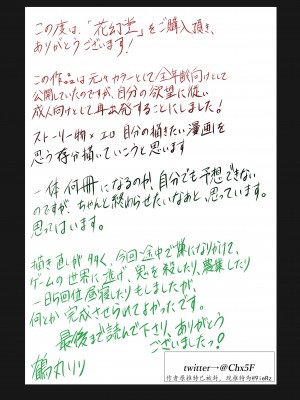 この度は、「花幻堂」をご購入頂き、
ありがとうございます!
この作品は元々カラーとして全年齢向けとして
公開していたのですが、自分の欲望に従い
成人向けとして再出発することにしました!
ストーリー物×エロ 自分の描きたい漫画を
思う存分描いていこうと思います
一体何冊になるのか、自分でも予想できない
のですが、ちゃんと終わらせたいなぁと、思っています。
思ってはいます。
描き直しが多く、今回途中で嫌になりかけて、
ゲームの世界に逃げ、鬼を殺したり、農業したり
一日5回位昼寝したりもしましたが、
何とか完成させられてよかったです。
最後まで読んで下さり、ありがとう
ございましたっ!
鶴丸リリ
twitter→@Chx5F
作者原推特已被封,现推特为